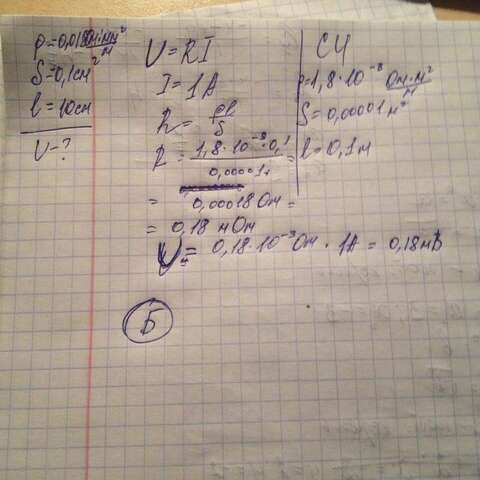 ρ=0,018 Ом·мм²/м
S=0,1см²
l=10см
U-?
U=RI
I=1A
R=ρl/S
R=1,8·10⁻⁸·0,1/0,00001=
=0,00018Ом=
=0,18мОм
U=0,18·10⁻³Ом·1A=0,18мВ
СИ
ρ=1,8·10⁻⁸ Ом·м²/м
S=0,00001м²
l=0,1м
Б